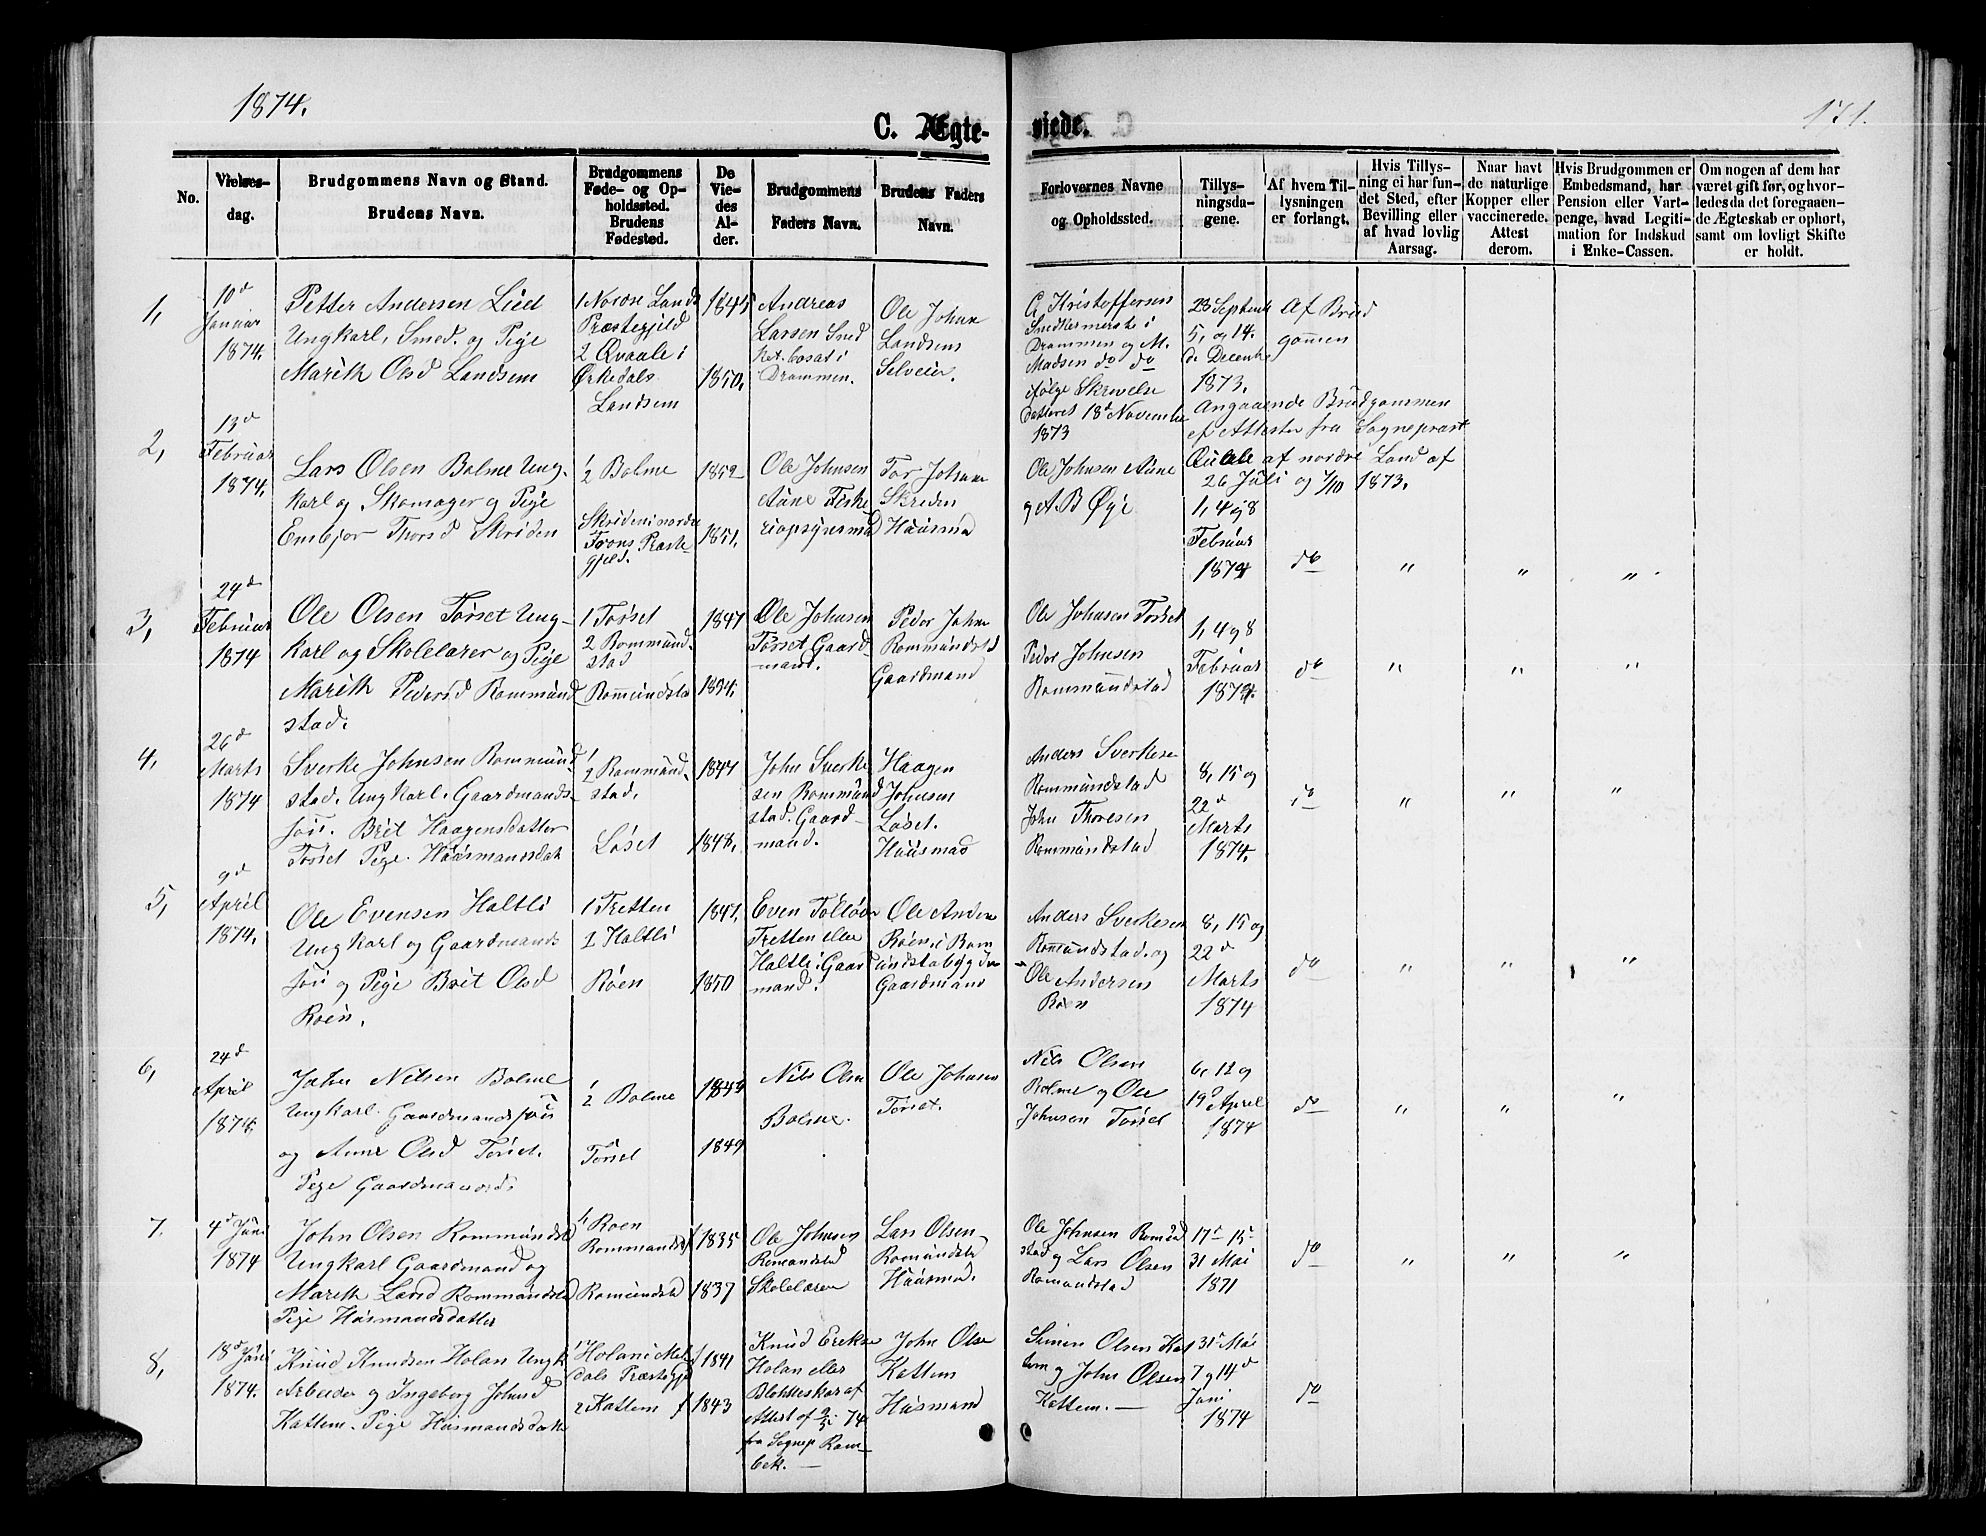 1874.
171.
C. Ægte-
viede.
No.
Vielses-
dag.
Brudgommens Navn og Stand.
Brudens Navn.
Brudgommens
Føde- og Op-
holdssted.
Brudens
Fødested.
De
Vie-
des
Al-
der.
Brudgommens
Faders Navn.
Brudens Faders
Navn.
Forlovernes Navne
og Opholdssted.
Tillys-
ningsda-
gene.
Af hvem Til-
lysningen
er forlangt.
Hvis Tillys-
ning ei har fun-
det Sted, efter
Bevilling eller
af hvad lovlig
Aarsag.
Naar havt
de naturlige
Kopper eller
vaccinerede.
Attest
derom.
Hvis Brudgommen er
Embedsmand, har
Pension eller Vart-
penge, hvad Legiti-
mation for Indskud
i Enke-Cassen.
Om nogen af dem har
været gift før, og hvor-
ledes da det foregaaen-
de Ægteskab er ophørt,
samt om lovligt Skifte
er holdt.
1,
10d
Januar
1874.
Petter Andersen Lied
Ungkarl, Smed. og Pige
Marith Olsd Landsem
1 Nordre Lands
Præstegjeld
2 Qvaale i
Ørkedals
Landsem
1845
1850,
Andreas
Larsen Smed
bosat i
Drammen.
Ole Johns
Landsem
Selveier.
Kristoffersen
Smedkermester i
Drammen og M.
Madsen do do
ifølge Skrivelse
dateret 18d Novembr
1873
28 Septemb
5, og 14.
de Decembr
1873.
Af Brud
gommen
Angaaende Brudgommen
ef Attester fra Sognepræst
Qvale af nordre Land af
26 Juli og 7/10 1873.
2,
13d
Februar
1874.
Lars Olsen Bolme Ung-
karl og Skomager og Pige
Embjør Thorsd Skriden
1/2 Bolme
Skriden i nordre
Frons Præste-
gjeld.
1852
1851.
Ole Johnsen
Aune Fiske
riopsynsmd
Tor Johans
Skreden
Huusmd
Ole Johnsen Aune
g A B Øye
1, 4 og 8
Februar
1874
do " " "
3,
24d
Februar
1874
Ole Olsen Torset Ung-
karl og Skolelærer og Pige
Marith Pedersd Rommund
stad.
1 Torset
2 Rommund-
stad
Rommundsta
1847
1854.
Ole Johnsen
Torset Gaard-
mand.
Peder Johns
Rommundstd
Gaardmand
Ole Johnsen Torset
Peder Johnsen
Rommundstad
1, 4 g 8
Februar
1874.
do " " "
4,
26d
Marts
1874
Sverke Johnsen Rommund-
stad. Ungkarl. Gaardmands-
søn. Brit Haagensdatter
Torset Pige. Huusmandsdat
1/2 Rommund-
stad.
Løset
1847
1848,
John Sverke
sen Rommund
stad. Gaard-
mand.
Haagen
Johnsen
Løset.
Huusmad
Anders Sverkese
Rommundstad
John Thoresen
Rommundstad
8, 15 og
22d
Marts
1874,
do " " "
5,
9d
April
1874,
Ole Evensen Haltli
Ungkarl og Gaardmands
søn og Pige Brit Olsd
Roen.
1 Tretten
2 Haltli
Roen
1847,
1850
Even
Tretten eller
Haltli Gaard
mand.
Ole Anders
Roen i Rom
undstabygden
Gaardmand
Anders Sverkesen
Rommundstad. og
Ole Andersen
Roen
8, 15 og
22d
Marts
1874
do " " "
6,
24d
April
1874.
John Nilsen Bolme
Ungkarl. Gaardmandssøn
og Anne Olsd Torset.
Pige Gaardmandsd.
1/2 Bolme
Torset
1849
1849
Nils Olsn
Bolme.
Ole Johnsen
Torset.
Nils Olsen
Bolme og Ole
Johnsen Torset
6, 12 og
19d April
1874
do " " "
7.
4d Juni
1874
John Olsen Rommundsta
Ungkarl Gaardmand og
Marith Larsd Rommundsta
Pige Husmandsdatter
1/ Roen
Rommunds
Romundsta
1835
1837
Ole Johnsen
Romundstad
Skolelæren
Lars Olsen
Romundsta
Huusmd.
Ole Johnsen Romud
stad og Lars Olsen
Romundstad
17d 15d
31 Mai
1871
do " " "
8,
18d Juni
1874.
Knud Knudsen Holan Ungk
Arbeider og Ingeborg Johnsd
Kattem. Pige Husmandsdatte
1 Holan i Mel
dals Præstegj
2 Kattem
1841
1843
Knud Erikse
Holan eller
Blokkeskar af
Attest af 2/5 74
fra Sognep Rom-
bek. —
John Olse
Kattem
Husmand
Simen Olsen Kat
tem og John Olsen
Kattem. —
31d Mai
7 og 14d
Juni
1874
do